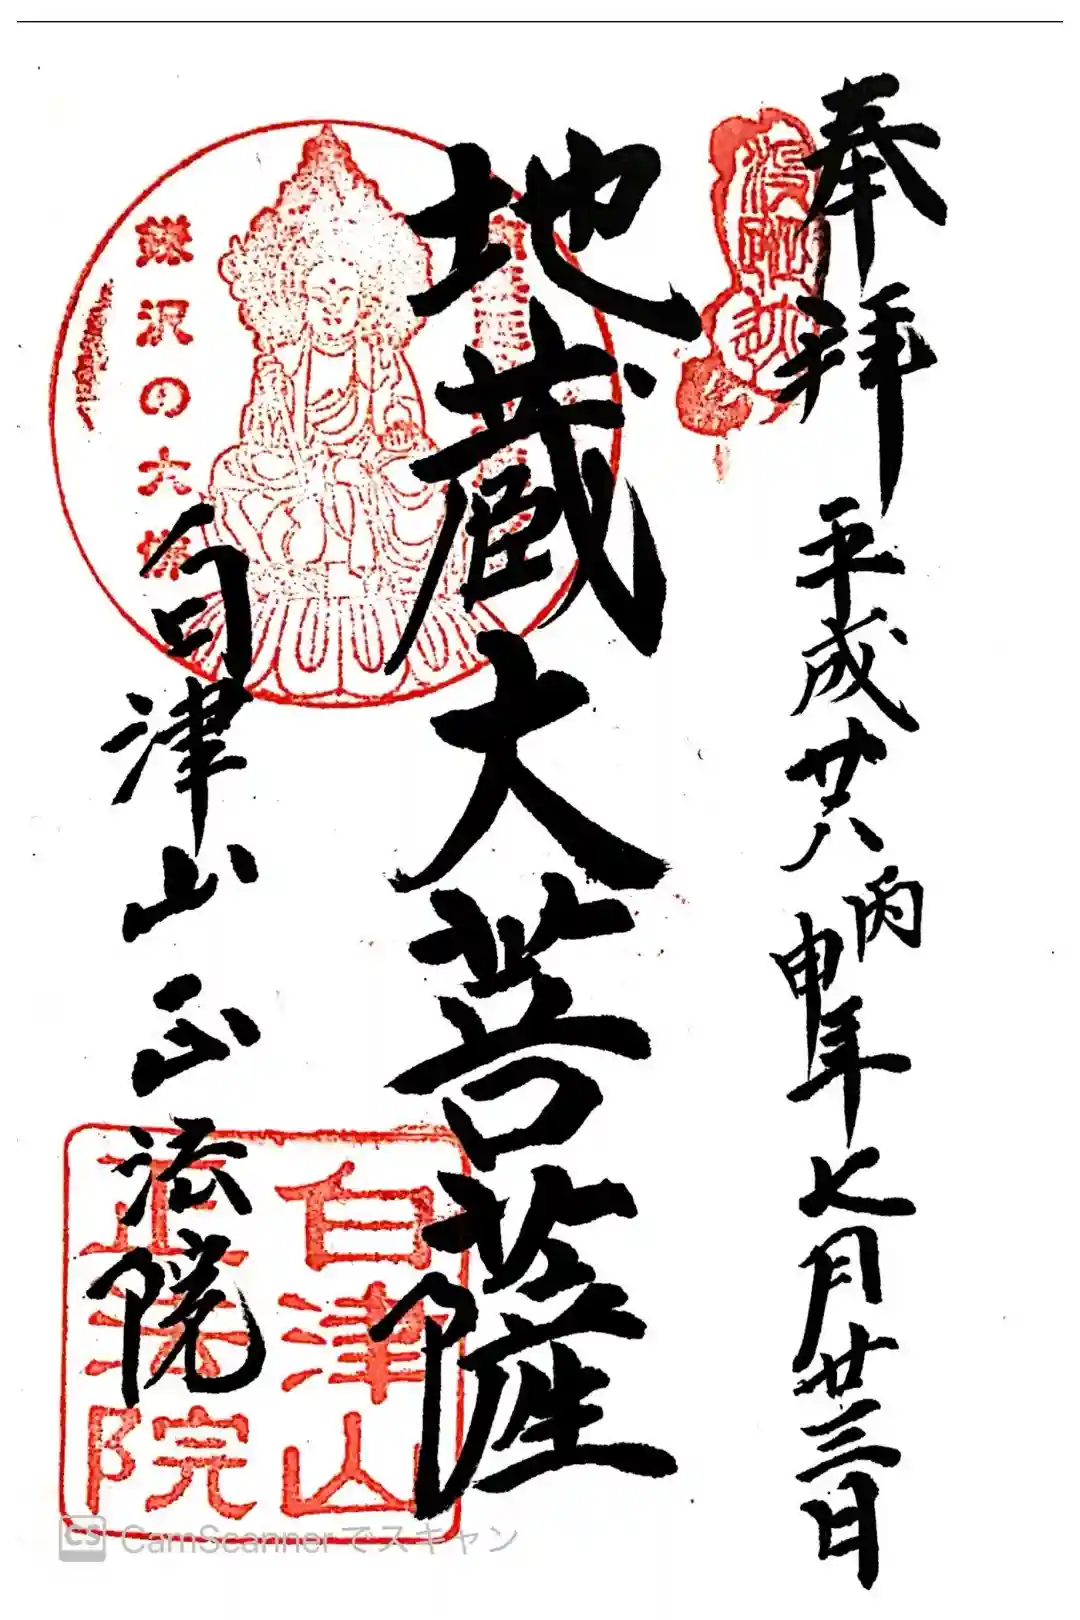 奉拝
平成廿八丙申年七月廿三日
地蔵大菩薩
白津山正法院
鎌沢の大佛
白津山
正法院
CS CamScanner でスキャン